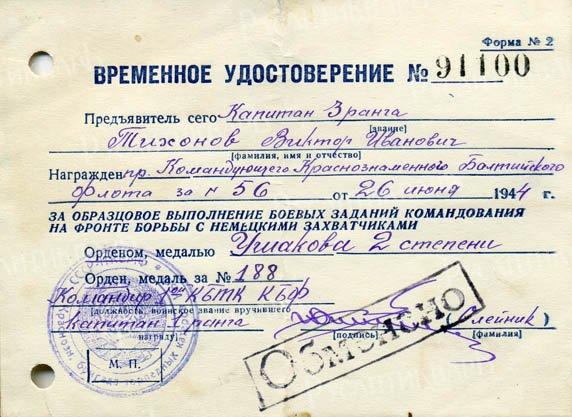 Форма № 2
ВРЕМЕННОЕ УДОСТОВЕРЕНИЕ № 91100
Предъявитель сего Капитан 3 ранга
[звание]
Тихонов Виктор Иванович
[фамилия, имя и отчество]
Награжден пр. Командующего Краснознаменного Балтийского
Флота за № 56 от 26 июня 1944 г.
ЗА ОБРАЗЦОВОЕ ВЫПОЛНЕНИЕ БОЕВЫХ ЗАДАНИЙ КОМАНДОВАНИЯ
НА ФРОНТЕ БОРЬБЫ С НЕМЕЦКИМИ ЗАХВАТЧИКАМИ
Орденом, медалью Ушакова 2 степени
Орден, медаль за № 188
Командир КБТК КБФ
[должность, воинское звание вручившего
капитан ранга (Олейник)
награду] [подпись] [фамилия]
М. П.
Обменено